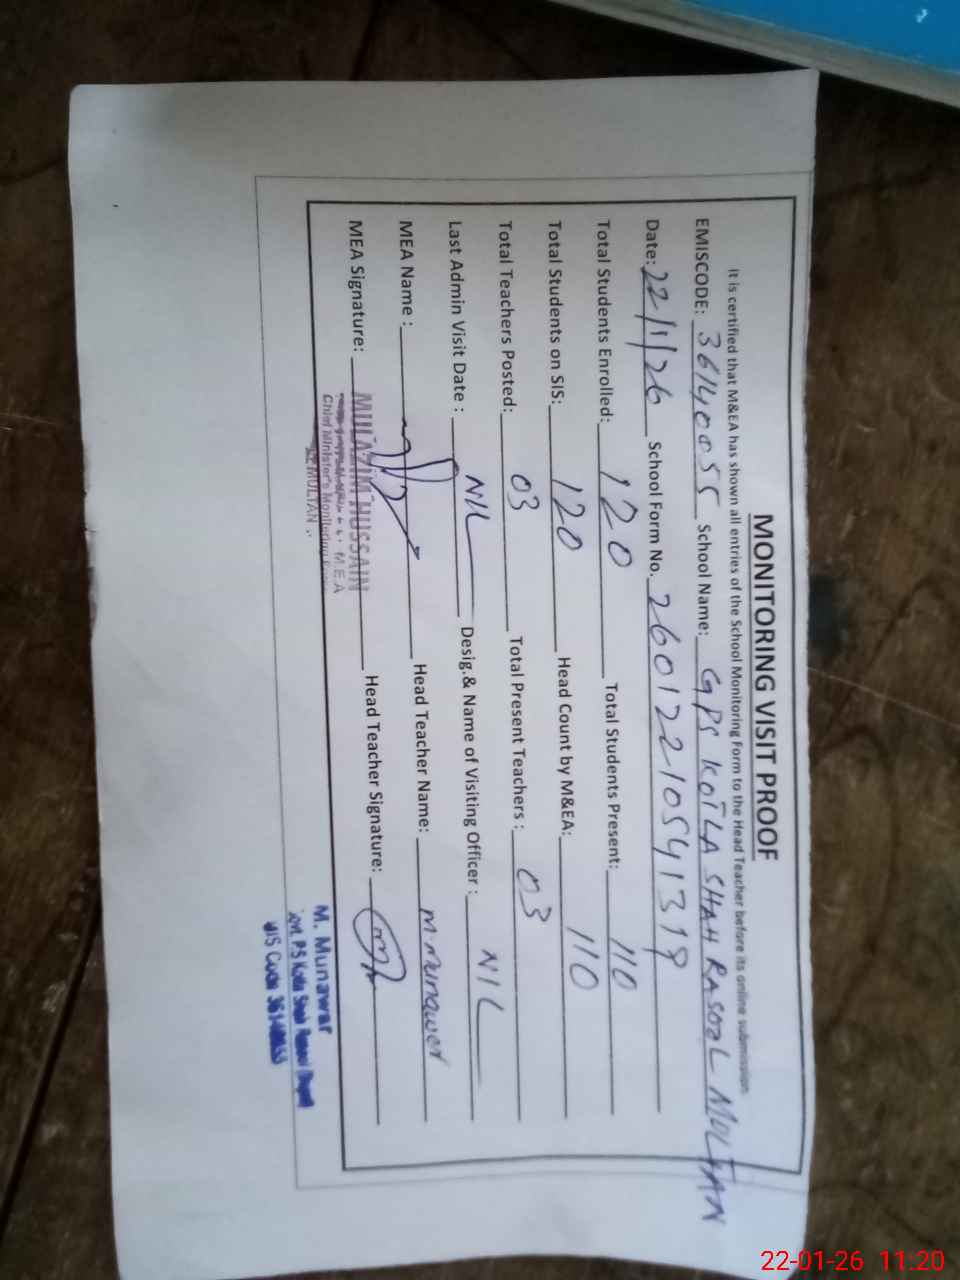 MONITORING VISIT PROOF
It is certified that M&EA has shown all entries of the School Monitoring Form to the Head Teacher before its online submission
EMISCODE: 36140055 School Name: GPS KOTLA SHAH RASOOL MULTAN
Date: 22/1/26 School Form No. 2601221054139
Total Students Enrolled: 120 Total Students Present: 110
Total Students on SIS: 120 Head Count by M&EA: 110
Total Teachers Posted: 03 Total Present Teachers : 03
Last Admin Visit Date : NIL Desig.& Name of Visiting Officer : NIL
MEA Name : Head Teacher Name: M. Munawer
MEA Signature: Head Teacher Signature:
MULAZIM HUSSAIN
M E A
Chief Minister's Monitoring
MULTAN
M. Munawar
Govt. P.S Kotla Shah Rasool
22-01-26 11:20